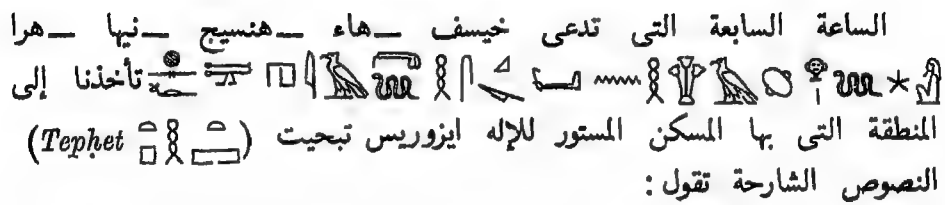 الساعة السابعة التى تدعى خيسف ـهاء ـهنسيج ـنيها ـهرا
تأخذنا إلى
المنطقة التى بها المسكن المستور للإله ايزوريس تبحيت (Tepḥet)
النصوص الشارحة تقول: